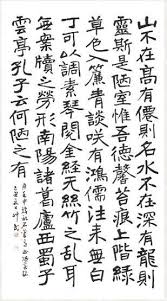 山不在高有僊則名水不在深有龍則
靈斯是陋室惟吾德馨苔痕上階綠
草色入簾青談咲有鴻儒往来無白
丁可以調素琴閱金經无絲竹之乱耳
無案牘之勞形南陽諸葛廬西蜀子
雲亭孔子云何陋之有